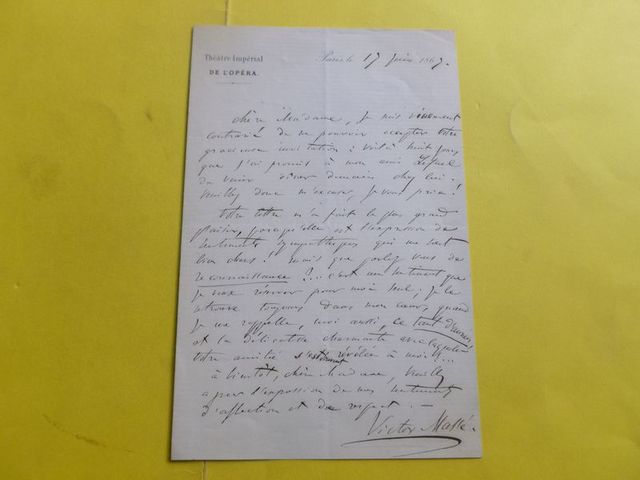 Théâtre Impérial
DE L'OPÉRA.
Paris le 17 juin 1867.
Chère Madame, je suis vivement
contrarié de ne pouvoir accepter votre
gracieuse invitation : voilà huit jours
que j'ai promis à mon ami
de venir dîner chez lui !
veuillez donc m'excuser, je vous prie !
Votre lettre m'a fait le plus grand
plaisir, puisqu'elle est l'expression de
sentiments sympathiques qui me sont
bien chers ! mais que parlez vous de
reconnaissance ? .. c'est un sentiment que
je veux réserver pour moi seul ; je le
retrouve toujours dans mon cœur, quand
je me rappelle, moi aussi, ce
et la délicatesse charmante avec laquelle
votre amitié s'est révélée à moi !...
à bientôt, chère Madame, veuillez
agréer l'expression de mes sentiments
d'affection et de respect. —
Victor Massé.